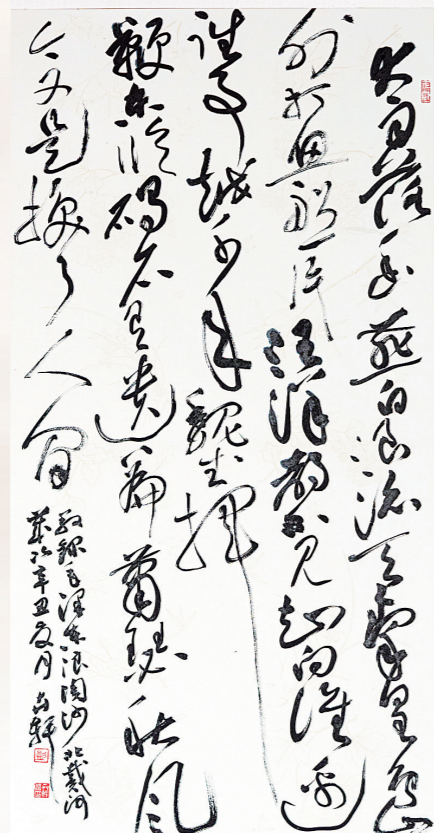 大雨落幽燕白浪滔天秦皇岛
外打鱼船一片汪洋都不见知向谁边
往事越千年魏武挥
鞭东临碣石有遗篇萧瑟秋风
今又是换了人间
敬录毛泽东浪淘沙北戴河
岁次辛丑夏月